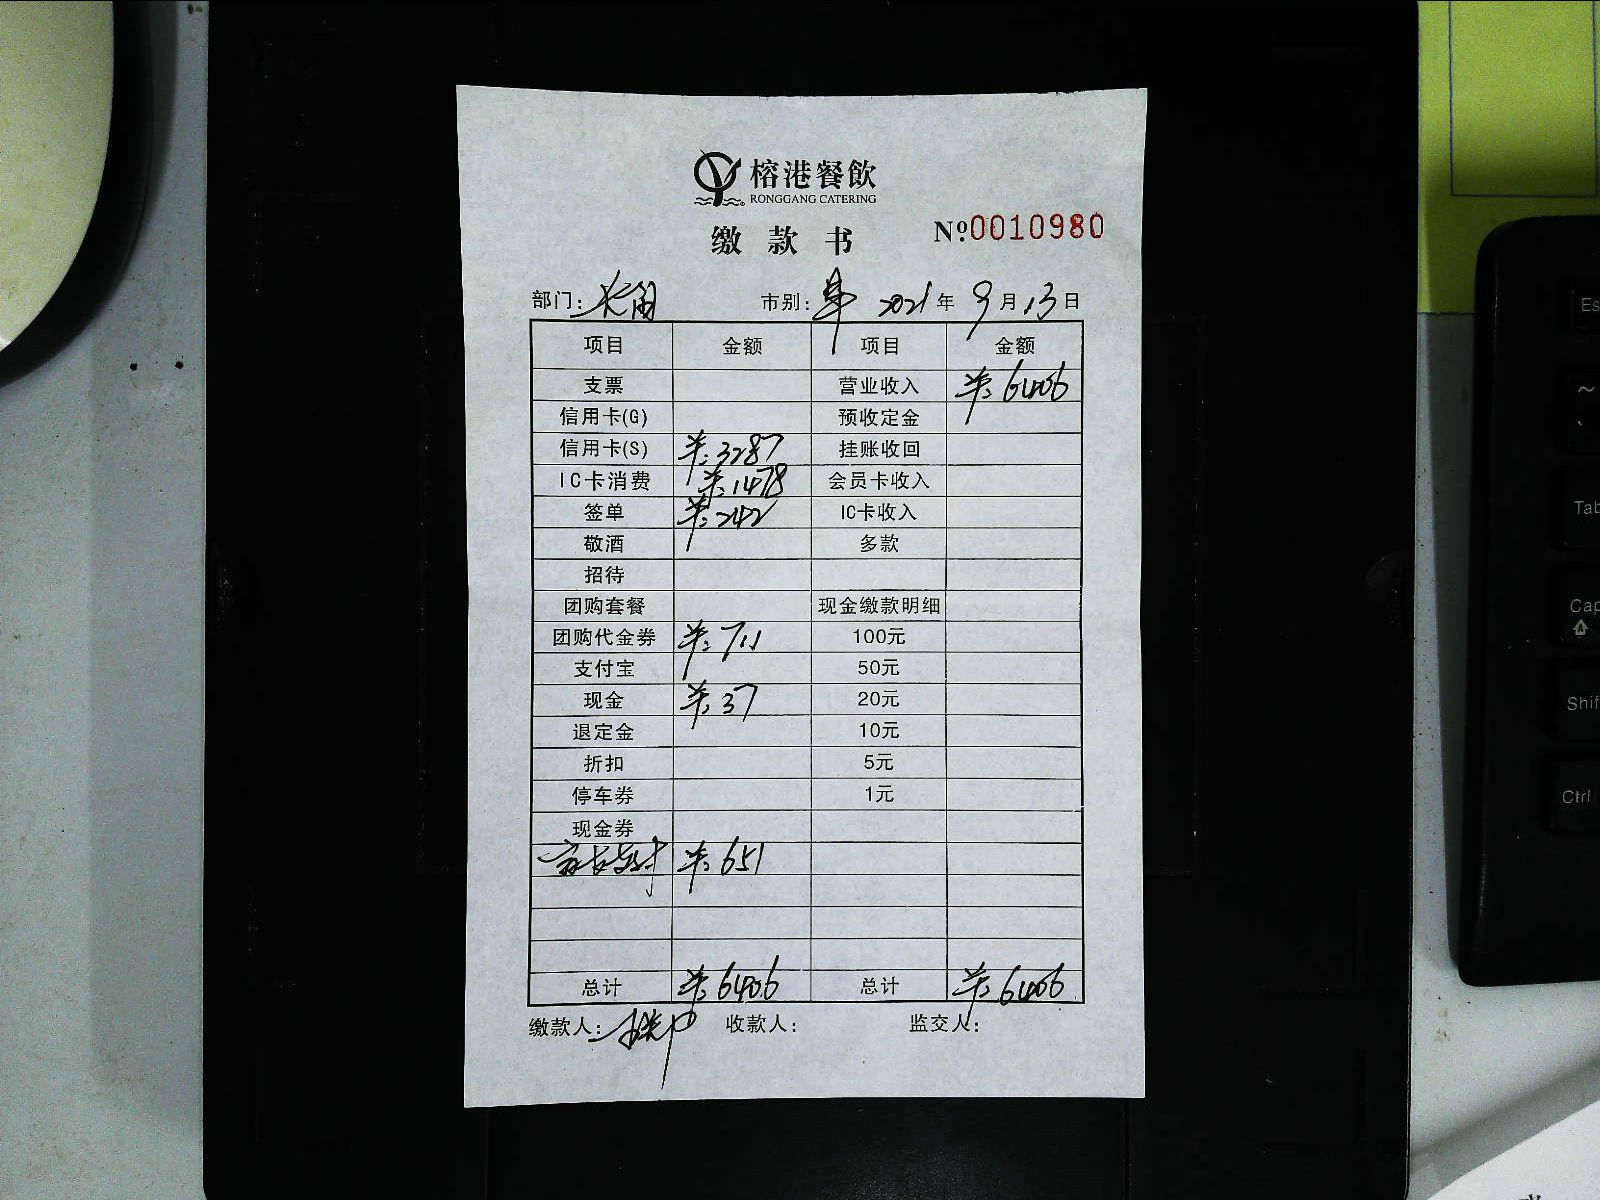 榕港餐飲
RONGGANG CATERING
缴款书
Nº:0010980
部门: 市别: 2021年 9月13日
项目 金额 项目 金额
支票 营业收入 羊:6406
信用卡(G) 预收定金
信用卡(S) 羊:3287 挂账收回
IC卡消费 羊:1478 会员卡收入
签单 羊:242 IC卡收入
敬酒 多款
招待
团购套餐 现金缴款明细
团购代金券 羊:711 100元
支付宝 50元
现金 羊:37 20元
退定金 10元
折扣 5元
停车券 1元
现金券
羊:651
总计 羊:6406 总计 羊:6406
缴款人: 收款人: 监交人:
Es
~
Tab
Cap
Shif
Ctrl